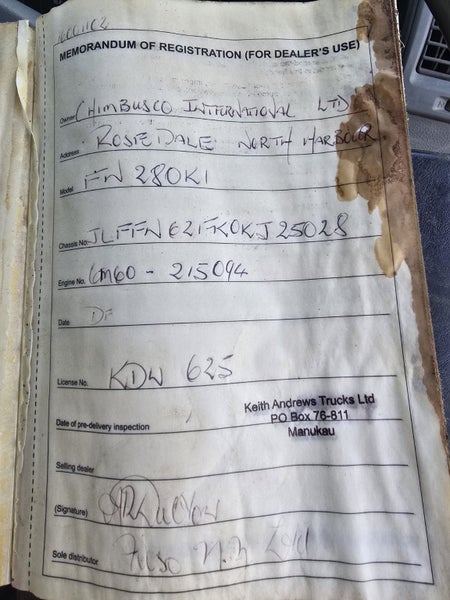 MEMORANDUM OF REGISTRATION (FOR DEALER'S USE)
Owner CHIMBUSCO INTERNATIONAL LTD
Address ROSEDALE NORTH HARBOUR
Model FN 280KI
Chassis No. JLFFN621FK0KJ25028
Engine No. 6M60 - 215094
Date
License No. KDW 625
Keith Andrews Trucks Ltd
PO Box 76-811
Manukau
Date of pre-delivery inspection
Selling dealer
(Signature)
Sole distributor Fuso N.Z Ltd